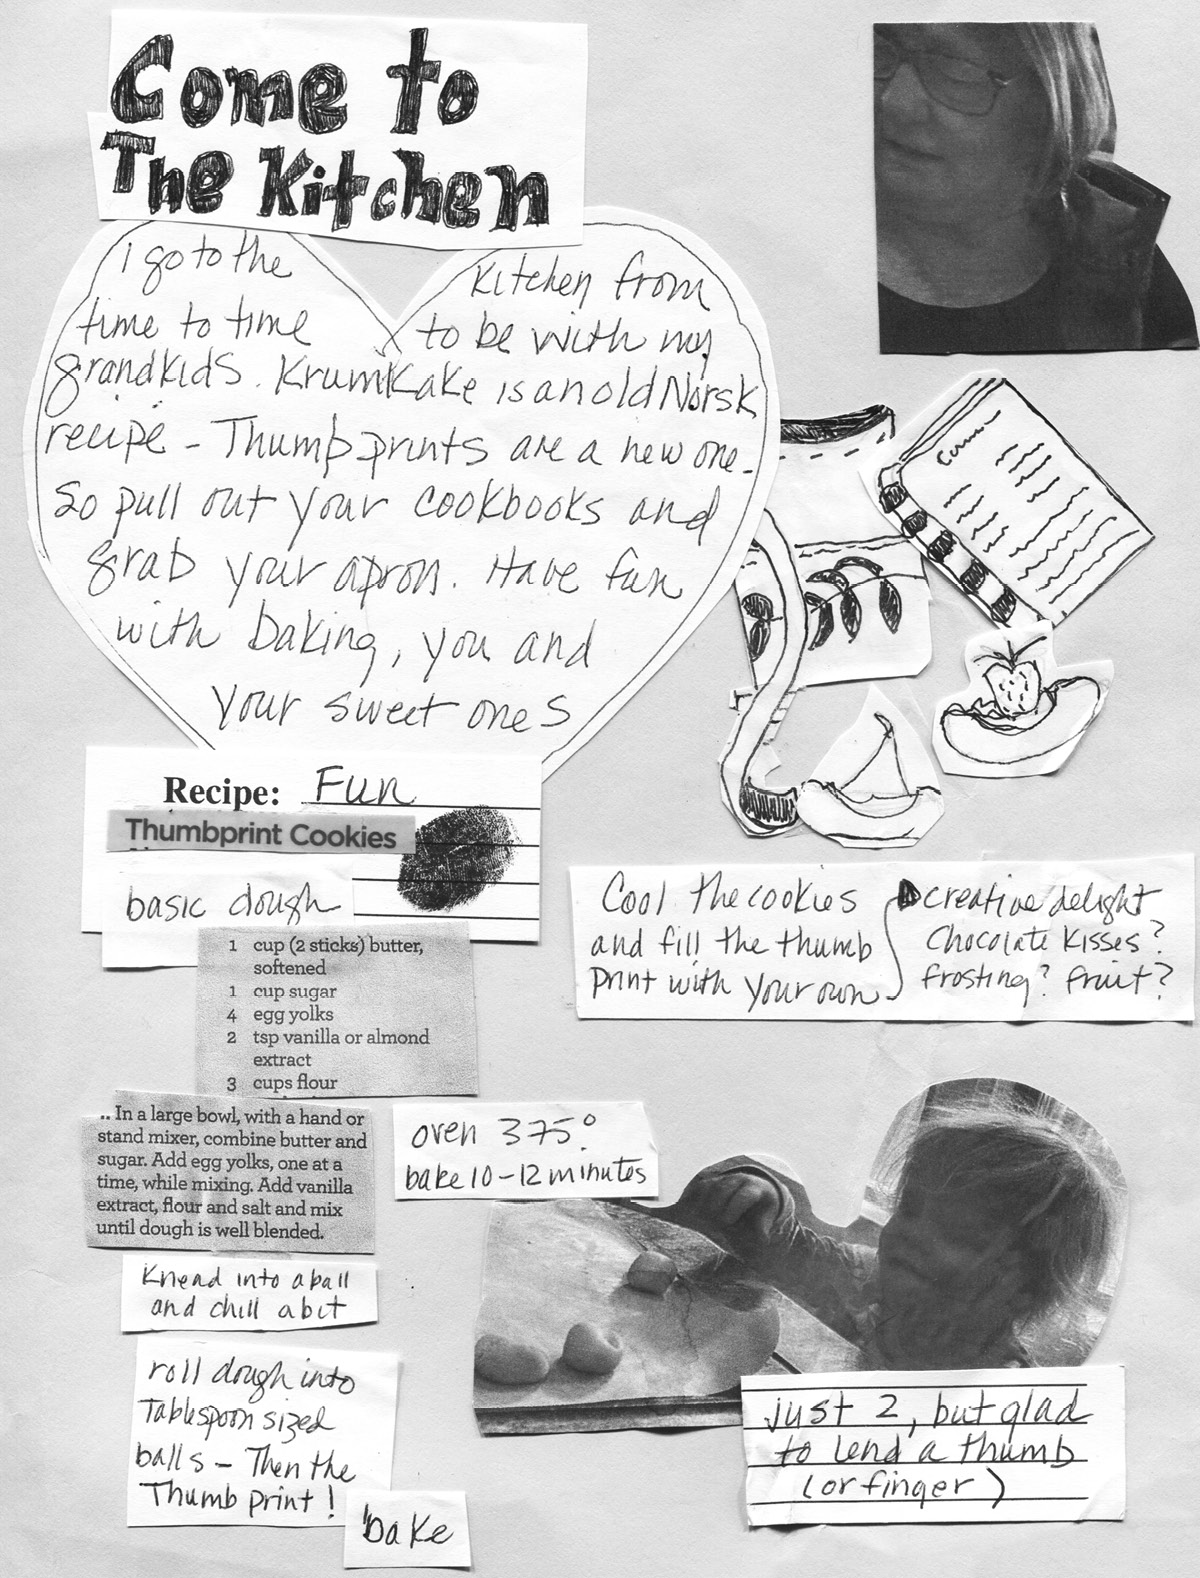 Come to
The Kitchen
I go to the kitchen from
time to time to be with my
grandkids. Krumkake is an old Norsk
recipe - Thumbprints are a new one.
So pull out your cookbooks and
grab your apron. Have fun
with baking, you and
your sweet ones
Recipe: Fun
Thumbprint Cookies
basic dough
1 cup (2 sticks) butter,
softened
1 cup sugar
4 egg yolks
2 tsp vanilla or almond
extract
3 cups flour
.. In a large bowl, with a hand or
stand mixer, combine butter and
sugar. Add egg yolks, one at a
time, while mixing. Add vanilla
extract, flour and salt and mix
until dough is well blended.
Knead into a ball
and chill a bit
roll dough into
Tablespoon sized
balls - Then the
Thumb print!
bake
oven 375°
bake 10-12 minutes
Cool the cookies
and fill the thumb
print with your own
creative delight
Chocolate Kisses?
frosting? fruit?
just 2, but glad
to lend a thumb
(or finger)